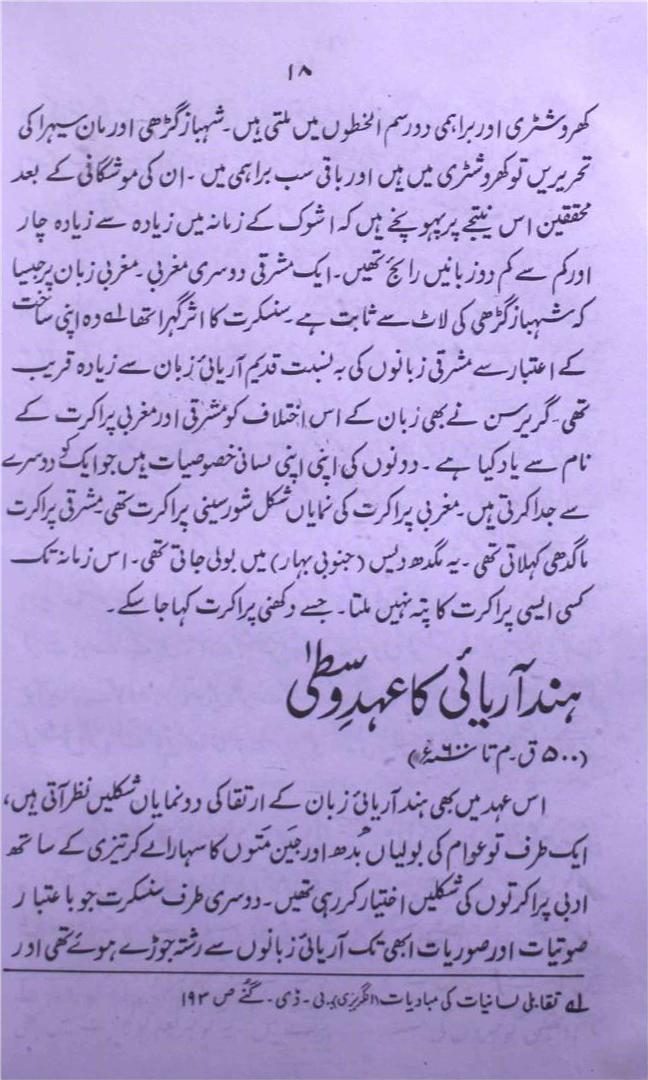 ۱۸
کھروشٹری اور براہمی دو رسم الخطوں میں ملتی ہیں۔ شہباز گڑھی اور مان سیہرا کی
تحریریں تو کھروشٹری میں ہیں اور باقی سب براہمی میں۔ ان کی موشگافی کے بعد
محققین اس نتیجے پر پہونچے ہیں کہ اشوک کے زمانہ میں زیادہ سے زیادہ چار
اور کم سے کم دو زبانیں رائج تھیں۔ ایک مشرقی دوسری مغربی۔ مغربی زبان پر جیسا
کہ شہباز گڑھی کی لاٹ سے ثابت ہے۔ سنسکرت کا اثر گہرا تھا لے وہ اپنی ساخت
کے اعتبار سے مشرقی زبانوں کی بہ نسبت قدیم آریائی زبان سے زیادہ قریب
تھی۔ گریرسن نے بھی زبان کے اس اختلاف کو مشرقی اور مغربی پراکرت کے
نام سے یاد کیا ہے۔ دونوں کی اپنی اپنی لسانی خصوصیات ہیں جو ایک کو دوسرے
سے جدا کرتی ہیں۔ مغربی پراکرت کی نمایاں شکل شورسینی پراکرت تھی۔ مشرقی پراکرت
ماگدھی کہلاتی تھی۔ یہ مگدھ دیس (جنوبی بہار) میں بولی جاتی تھی۔ اس زمانہ تک
کسی ایسی پراکرت کا پتہ نہیں ملتا۔ جسے دکھنی پراکرت کہا جا سکے۔
ہند آریائی کا عہدِ وسطیٰ
(۵۰۰ ق۔م تا ۶۰۰ء)
اس عہد میں بھی ہند آریائی زبان کے ارتقا کی دو نمایاں شکلیں نظر آتی ہیں،
ایک طرف تو عوام کی بولیاں بُدھ اور جَین مَتوں کا سہارا لے کر تیزی کے ساتھ
ادبی پراکرتوں کی شکلیں اختیار کر رہی تھیں۔ دوسری طرف سنسکرت جو باعتبار
صوتیات اور صوریات ابھی تک آریائی زبانوں سے رشتہ جوڑے ہوئے تھی اور
لے تقابلی لسانیات کی مبادیات (انگریزی)۔ بی۔ ڈی۔ گُنے ص ۱۹۳